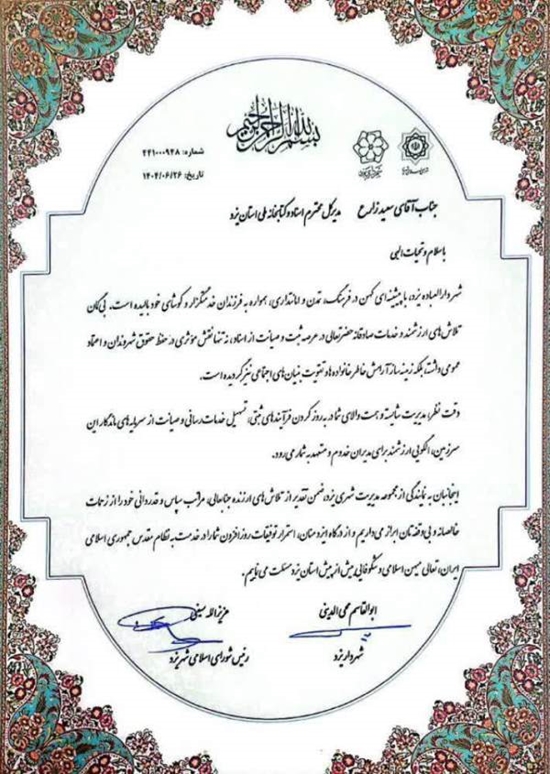 بسم الله الرحمن الرحیم
شماره: ۴۴۱۰۰۰۹۴۸
تاریخ: ۱۴۰۴/۰۶/۲۶
جناب آقای سعید زارع مدیرکل محترم اسناد و کتابخانه ملی استان یزد
با سلام و تحیات الهی
شهر دارالعباده یزد، با پیشینه‌ای کهن در فرهنگ، تمدن و امانتداری، همواره به فرزندان خدمتگزار و کوشای خود بالیده است. بی‌گمان
تلاش‌های ارزشمند و خدمات صادقانه حضرتعالی در عرصه ثبت و صیانت از اسناد، نه تنها نقش مؤثری در حفظ حقوق شهروندان و اعتماد
عمومی داشته، بلکه زمینه‌ساز آرامش خاطر خانواده‌ها و تقویت بنیان‌های اجتماعی نیز گردیده است.
دقت نظر، مدیریت شایسته و همت والای شما در به روز کردن فرآیندهای ثبتی، تسهیل خدمات رسانی و صیانت از سرمایه‌های ماندگار این
سرزمین، الگویی ارزشمند برای مدیران خدوم و متعهد به شمار می‌رود.
اینجانبان به نمایندگی از مجموعه مدیریت شهری یزد، ضمن تقدیر از تلاش‌های ارزنده جنابعالی، مراتب سپاس و قدردانی خود را از زحمات
خالصانه و بی‌وقفه‌تان ابراز می‌داریم و از درگاه ایزد منان، استمرار توفیقات روزافزون شما را در خدمت به نظام مقدس جمهوری اسلامی
ایران، تعالی میهن اسلامی و شکوفایی بیش از پیش استان یزد مسئلت می‌نماییم.
ابوالقاسم محی‌الدینی
شهردار یزد
عزیزالله سیفی
رئیس شورای اسلامی شهر یزد